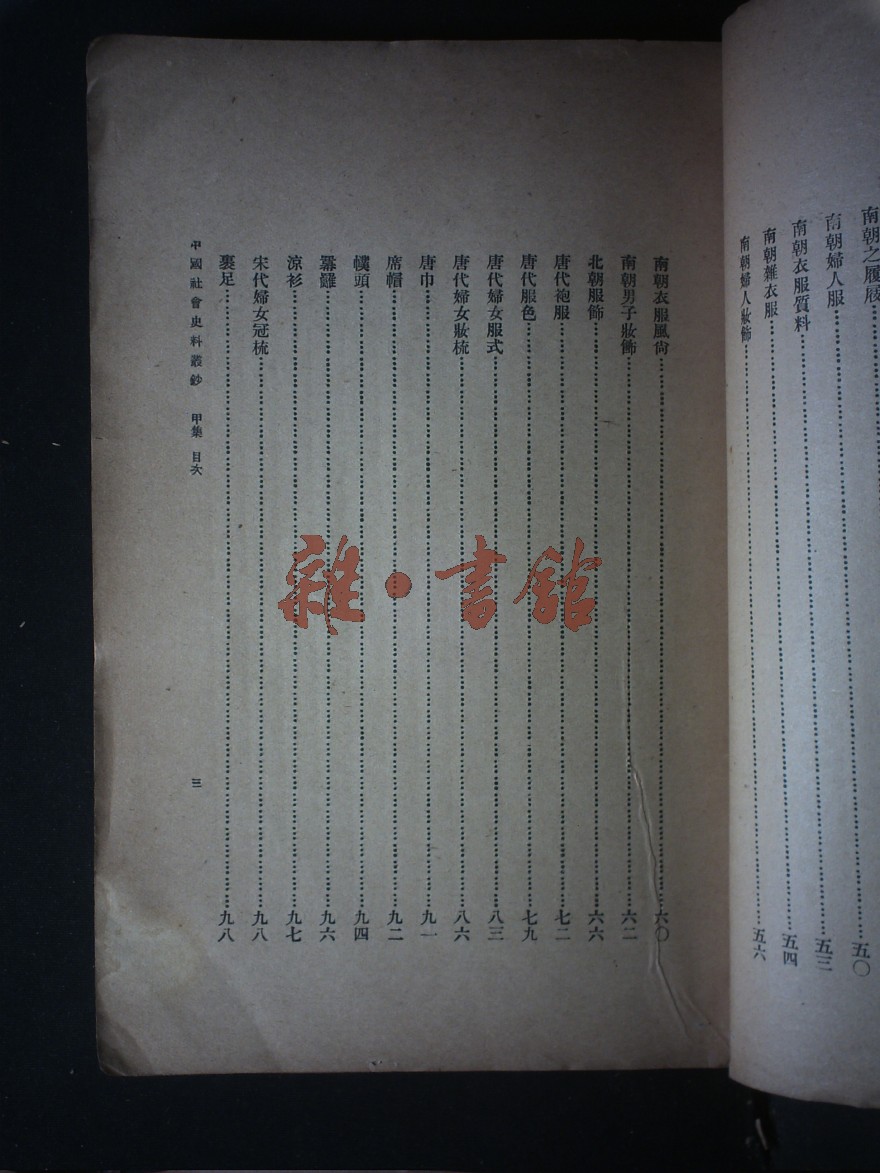 南朝之履屐……五〇
南朝婦人服……五三
南朝衣服質料……五四
南朝雜衣服
南朝婦人妝飾……五六
南朝衣服風尙……六〇
南朝男子妝飾……六二
北朝服飾……六六
唐代袍服……七二
唐代服色……七九
唐代婦女服式……八三
唐代婦女妝梳……八六
唐巾……九一
席帽……九二
幞頭……九四
羃䍦……九六
涼衫……九七
宋代婦女冠梳……九八
裹足……九八
中國社會史料叢鈔 甲集 目次 三
雜·書館